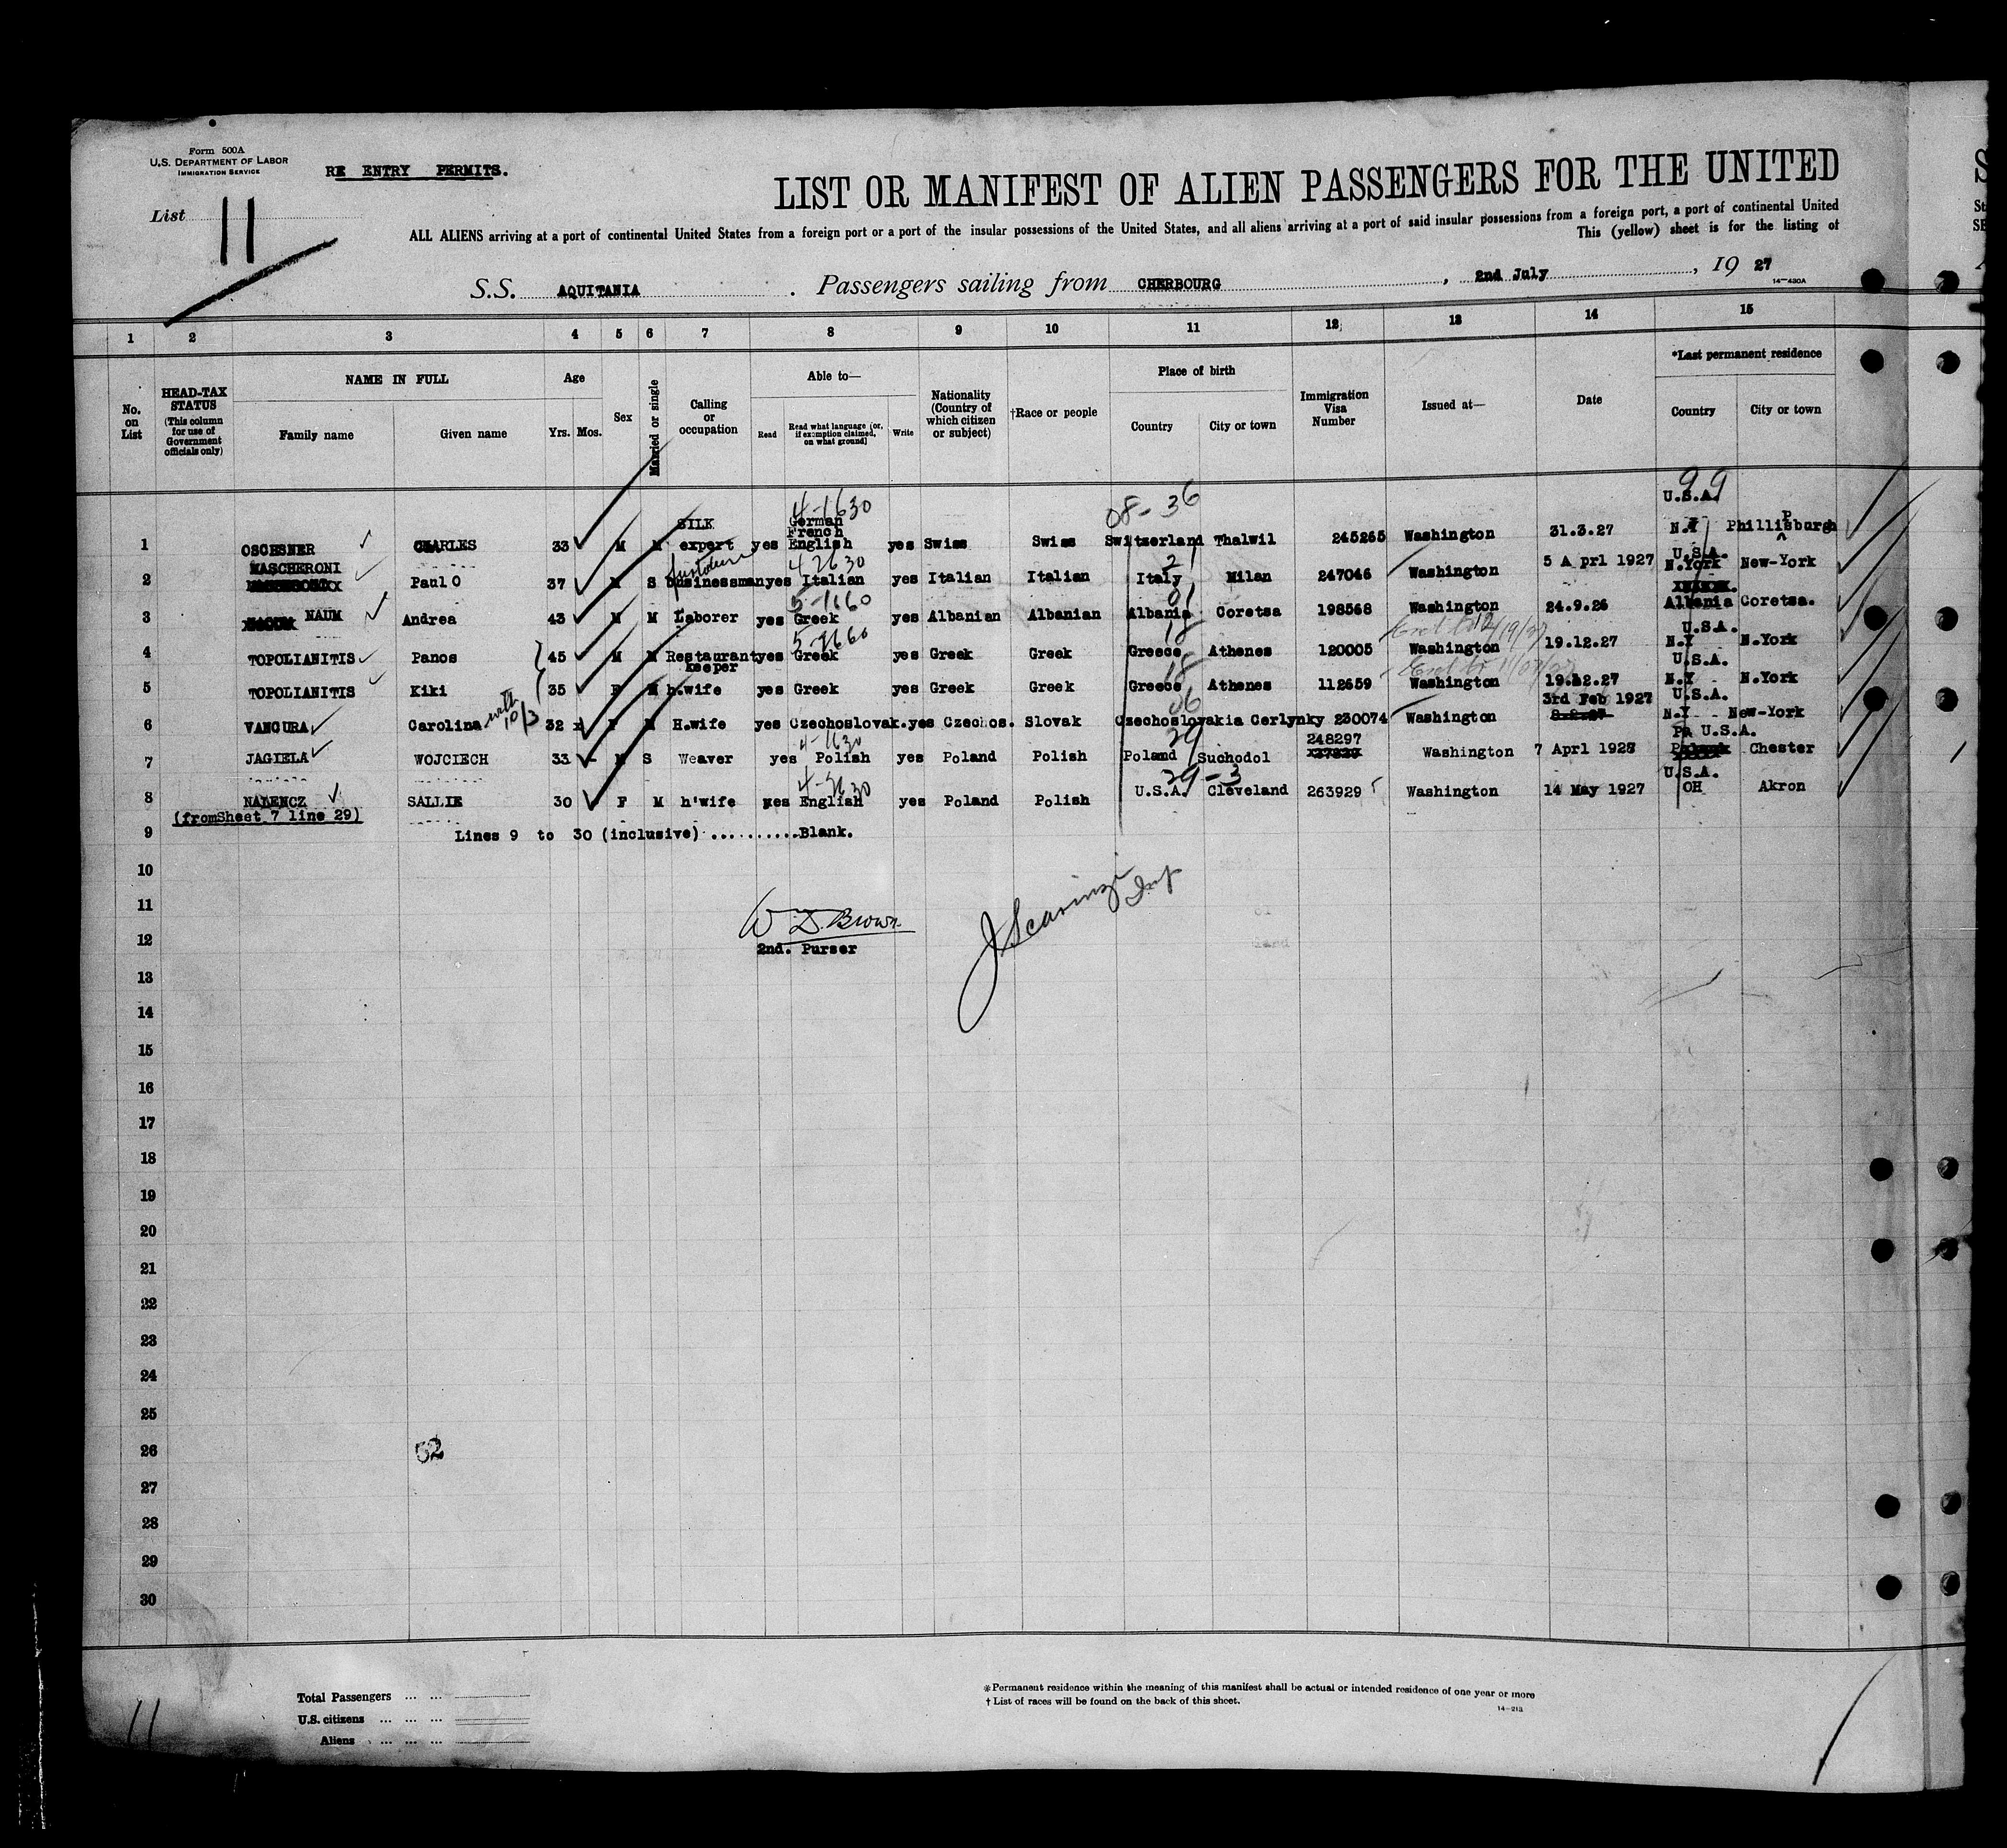 Form 500A
U.S. DEPARTMENT OF LABOR
IMMIGRATION SERVICE
RE ENTRY PERMITS.
List 11
LIST OR MANIFEST OF ALIEN PASSENGERS FOR THE UNITED
ALL ALIENS arriving at a port of continental United States from a foreign port or a port of the insular possessions of the United States, and all aliens arriving at a port of said insular possessions from a foreign port, a port of continental United
This (yellow) sheet is for the listing of
S.S. AQUITANIA . Passengers sailing from CHERBOURG , 2nd July , 19 27
14—430A
1 2 3 4 5 6 7 8 9 10 11 12 13 14 15
No. on List
HEAD-TAX STATUS (This column for use of Government officials only)
NAME IN FULL
Family name Given name
Age
Yrs. Mos.
Sex
Married or single
Calling or occupation
Able to—
Read Read what language (or, if exemption claimed, on what ground) Write
Nationality (Country of which citizen or subject)
†Race or people
Place of birth
Country City or town
Immigration Visa Number
Issued at—
Date
*Last permanent residence
Country City or town
99
4-1630 08-36 U.S.A.
SILK German
French P
1 OSCHSNER CHARLES 33 M M expert yes English yes Swiss Swiss Switzerland Thalwil 245265 Washington 31.3.27 N.Y Phillisburgh
MASCHERONI 42630 21 U.S.A.
2 Paul O 37 M S businessman yes Italian yes Italian Italian Italy Milan 247046 Washington 5 A prl 1927 N.York New-York
5-1660 01
3 NAUM Andrea 43 M M Laborer yes Greek yes Albanian Albanian Albania Coretsa 198568 Washington 24.9.26 Albania Coretsa.
18 U.S.A.
4 TOPOLIANITIS Panos 45 M M Restaurant keeper yes Greek yes Greek Greek Greece Athenes 120005 Washington 19.12.27 N.Y N.York
18 U.S.A.
5 TOPOLIANITIS Kiki 35 F M h.wife yes Greek yes Greek Greek Greece Athenes 112659 Washington 19.12.27 N.Y N.York
with 10/3 06 3rd Feb 1927 U.S.A.
6 VANCURA Carolina 32 F M H.wife yes Czechoslovak. yes Czechos. Slovak Czechoslovakia Cerlynky 230074 Washington N.Y New-York
4-1630 29 248297 Pa U.S.A.
7 JAGIELA WOJCIECH 33 M S Weaver yes Polish yes Poland Polish Poland Suchodol Washington 7 Aprl 1927 Chester
29-3 U.S.A.
8 NALENCZ SALLIE 30 F M h'wife yes English yes Poland Polish U.S.A. Cleveland 263929 Washington 14 May 1927 OH Akron
(fromSheet 7 line 29)
9 Lines 9 to 30 (inclusive)..........Blank.
10
11
W D. Brown
J Scaringi Insp
12
2nd. Purser
13
14
15
16
17
18
19
20
21
22
23
24
25
26
52
27
28
29
30
Total Passengers ... ...
U.S. citizens ... ... ...
Aliens ... ... ...
* Permanent residence within the meaning of this manifest shall be actual or intended residence of one year or more
† List of races will be found on the back of this sheet.
14—213
11